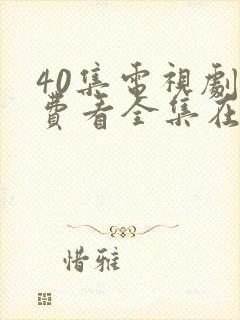 40集電視劇
費看全集在
惜雅